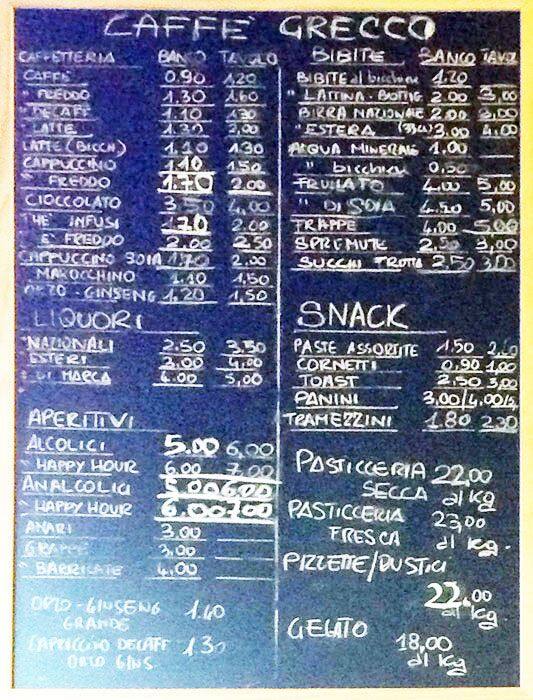 CAFFE' GRECCO
CAFFETTERIA BANCO TAVOLO
CAFFE' 0.90 1.20
" FREDDO 1.30 1.60
" DECAFF 1.10 1.30
" LATTE 1.30 2.00
LATTE (BICCH) 1.10 1.30
CAPPUCCINO 1.10 1.50
" FREDDO 1.70 2.00
CIOCCOLATO 3.50 4.00
THE' INFUSI 1.70 2.00
" E' FREDDO 2.00 2.50
CAPPUCCINO SOIA 1.70 2.00
MAROCCHINO 1.10 1.50
ORZO - GINSENG 1.20 1.50
LIQUORI
NAZIONALI 2.50 3.50
ESTERI 3.00 4.00
" DI MARCA 4.00 5,00
APERITIVI
ALCOLICI 5.00 6,00
" HAPPY HOUR 6.00 7.00
ANALCOLICI 5.00 6.00
" HAPPY HOUR 6.00 7.00
AMARI 3.00
GRAPPE 3,00
" BARRICATE 4,00
ORZO - GINSENG 1.40
GRANDE
CAPPUCCINO DECAFF 1.30
ORZO GINS
BIBITE BANCO TAVOL
BIBITE al bicchiere 1.20
" LATTINA - BOTTIG 2.00 3,00
BIRRA NAZIONALE 2.00 3,00
" ESTERA (33cl) 3,00 4,00
ACQUA MINERALE 1.00
" bicchiere 0.50
FRULLATO 4,00 5,00
" DI SOIA 4.50 5,00
FRAPPE 4,00 5,00
SPREMUTE 2.50 3,00
SUCCHI FRUTTA 2.50 3.00
SNACK
PASTE ASSORTITE 1.50
CORNETTI 0.90 1,00
TOAST 2.50 3,00
PANINI 3,00/4,00/5,
TRAMEZZINI 1.80 2.30
PASTICCERIA 22,00
SECCA al kg
PASTICCERIA 23,00
FRESCA al kg.
PIZZETTE/RUSTICI
22,00
al kg
GELATO 18,00
al kg